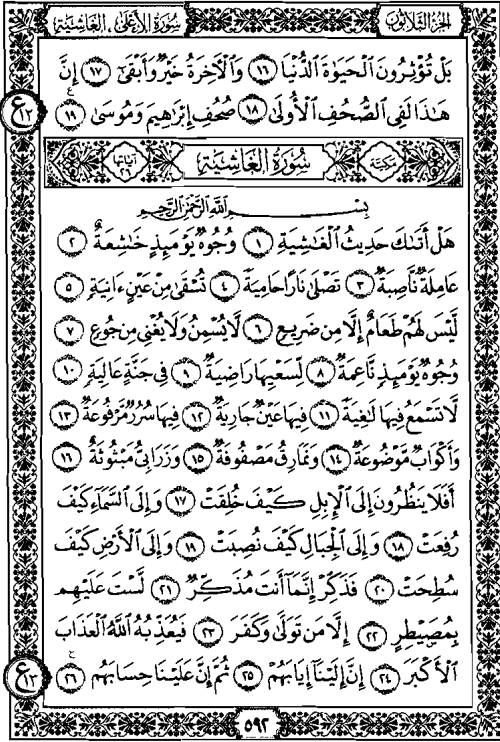 سُورَةُ الأَعْلَى ، الغَاشِيَة الجُزْءُ الثَّلَاثُون
بَلْ تُؤْثِرُونَ ٱلْحَيَوٰةَ ٱلدُّنْيَا ١٦ وَٱلْأَخِرَةُ خَيْرٌ وَأَبْقَىٰٓ ١٧ إِنَّ
هَـٰذَا لَفِى ٱلصُّحُفِ ٱلْأُولَىٰ ١٨ صُحُفِ إِبْرَٰهِيمَ وَمُوسَىٰ ١٩
ع ١٢
مَكِّيَّة سُورَةُ الغَاشِيَةِ آيَاتُهَا ٢٦
بِسْمِ ٱللَّهِ ٱلرَّحْمَـٰنِ ٱلرَّحِيمِ
هَلْ أَتَىٰكَ حَدِيثُ ٱلْغَـٰشِيَةِ ١ وُجُوهٌ يَوْمَئِذٍ خَـٰشِعَةٌ ٢
عَامِلَةٌ نَّاصِبَةٌ ٣ تَصْلَىٰ نَارًا حَامِيَةً ٤ تُسْقَىٰ مِنْ عَيْنٍ ءَانِيَةٍ ٥
لَّيْسَ لَهُمْ طَعَامٌ إِلَّا مِن ضَرِيعٍ ٦ لَّا يُسْمِنُ وَلَا يُغْنِى مِن جُوعٍ ٧
وُجُوهٌ يَوْمَئِذٍ نَّاعِمَةٌ ٨ لِّسَعْيِهَا رَاضِيَةٌ ٩ فِى جَنَّةٍ عَالِيَةٍ ١٠
لَّا تَسْمَعُ فِيهَا لَـٰغِيَةً ١١ فِيهَا عَيْنٌ جَارِيَةٌ ١٢ فِيهَا سُرُرٌ مَّرْفُوعَةٌ ١٣
وَأَكْوَابٌ مَّوْضُوعَةٌ ١٤ وَنَمَارِقُ مَصْفُوفَةٌ ١٥ وَزَرَابِىُّ مَبْثُوثَةٌ ١٦
أَفَلَا يَنظُرُونَ إِلَى ٱلْإِبِلِ كَيْفَ خُلِقَتْ ١٧ وَإِلَى ٱلسَّمَآءِ كَيْفَ
رُفِعَتْ ١٨ وَإِلَى ٱلْجِبَالِ كَيْفَ نُصِبَتْ ١٩ وَإِلَى ٱلْأَرْضِ كَيْفَ
سُطِحَتْ ٢٠ فَذَكِّرْ إِنَّمَآ أَنتَ مُذَكِّرٌ ٢١ لَّسْتَ عَلَيْهِم
بِمُصَيْطِرٍ ٢٢ إِلَّا مَن تَوَلَّىٰ وَكَفَرَ ٢٣ فَيُعَذِّبُهُ ٱللَّهُ ٱلْعَذَابَ
ٱلْأَكْبَرَ ٢٤ إِنَّ إِلَيْنَآ إِيَابَهُمْ ٢٥ ثُمَّ إِنَّ عَلَيْنَا حِسَابَهُم ٢٦
ع ١٣
٥٩٢